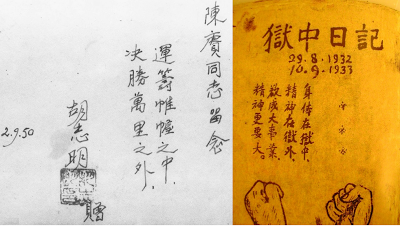 陳賡同志留念
運籌帷幄之中.
决勝萬里之外.
胡志明
贈
2.9.50
獄中日記
29.8.1932
10.9.1933
身体在獄中,
精神在獄外,
欲成大事業,
精神更要大.